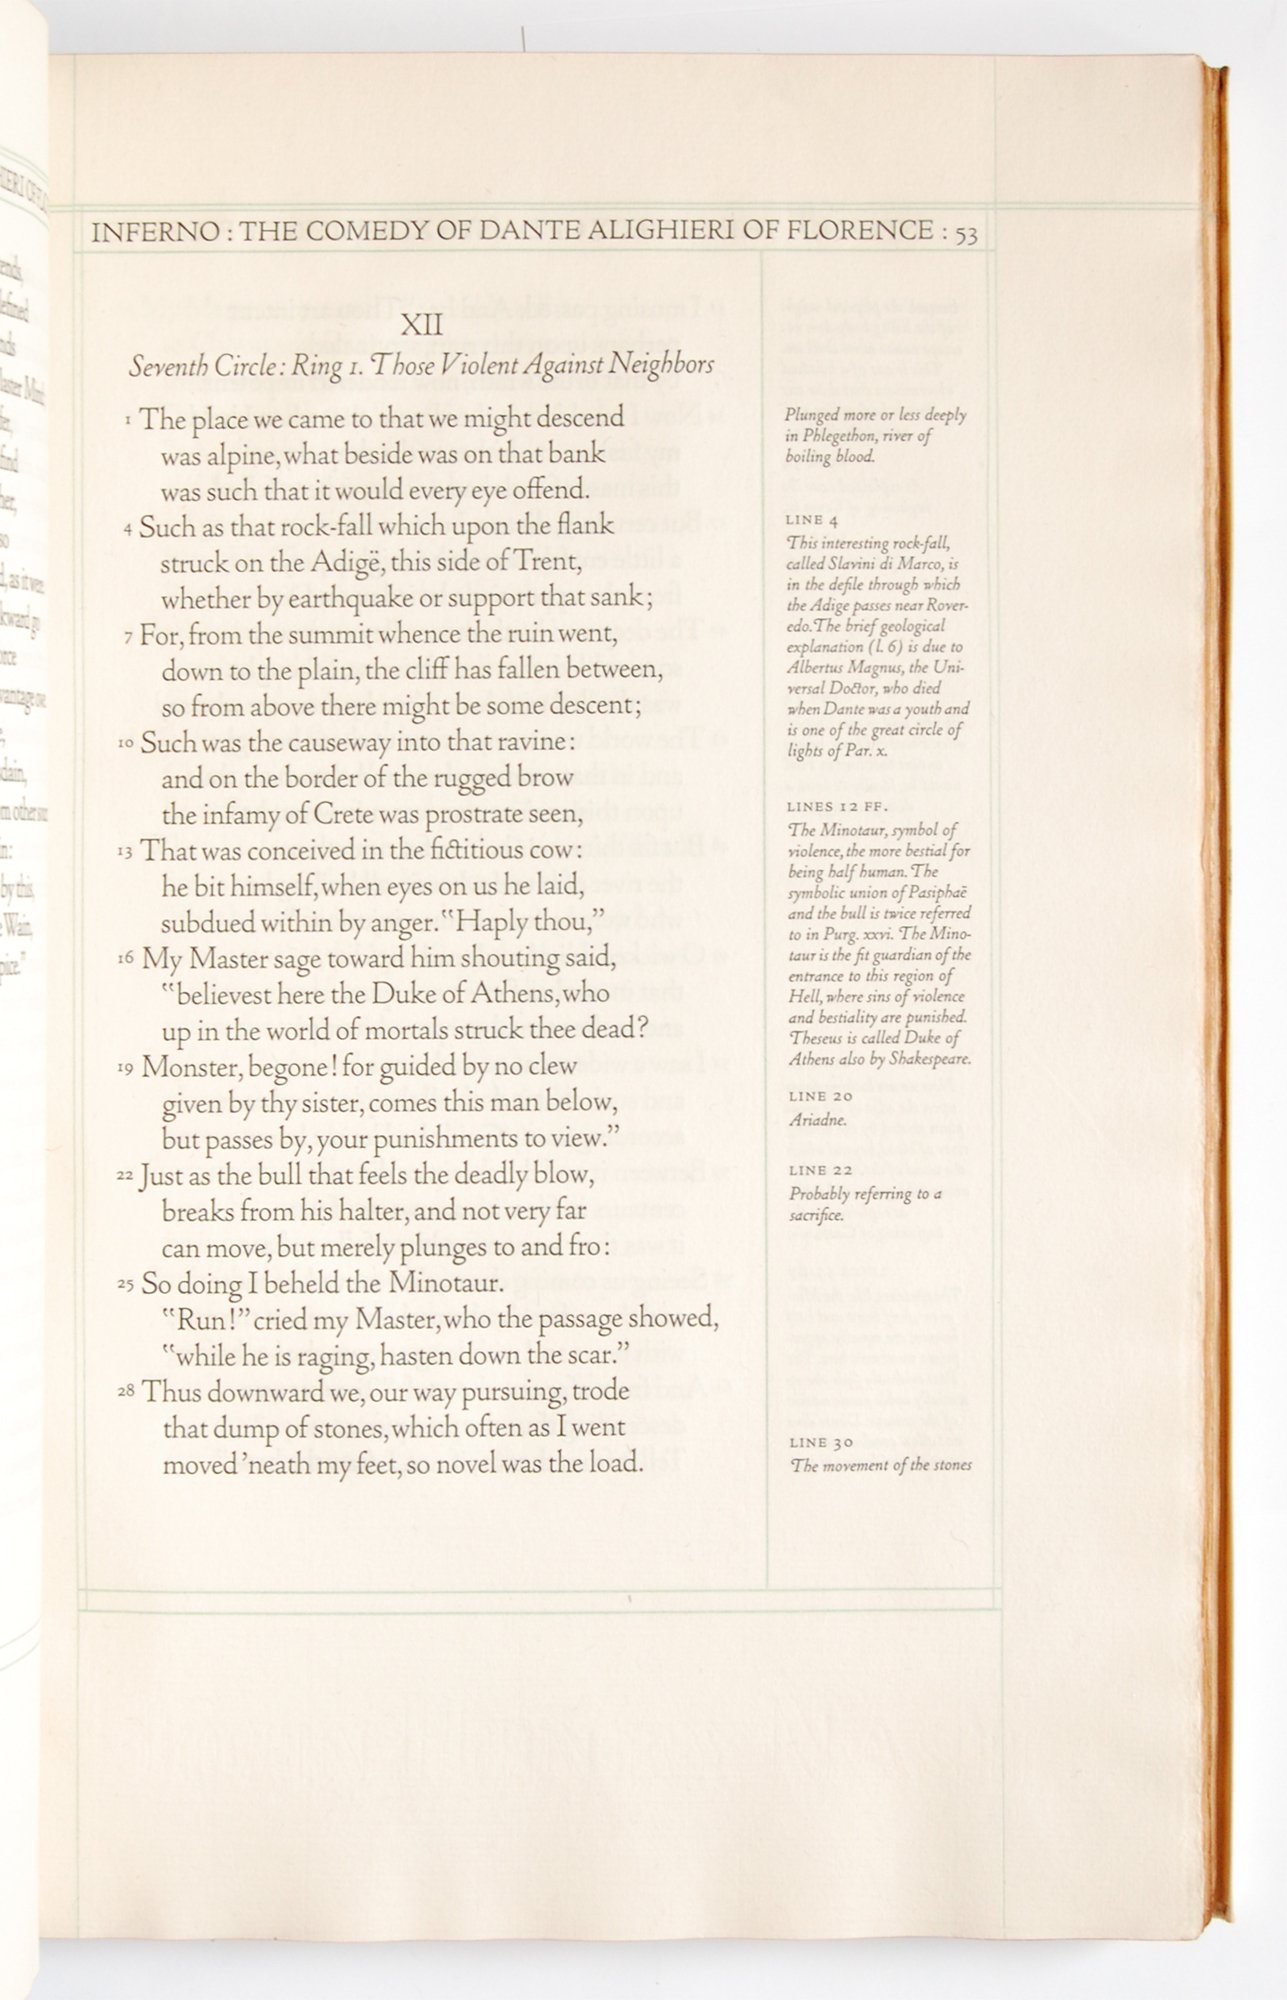 INFERNO : THE COMEDY OF DANTE ALIGHIERI OF FLORENCE : 53
XII
Seventh Circle: Ring 1. Those Violent Against Neighbors
1 The place we came to that we might descend
was alpine, what beside was on that bank
was such that it would every eye offend.
4 Such as that rock-fall which upon the flank
struck on the Adigë, this side of Trent,
whether by earthquake or support that sank;
7 For, from the summit whence the ruin went,
down to the plain, the cliff has fallen between,
so from above there might be some descent;
10 Such was the causeway into that ravine:
and on the border of the rugged brow
the infamy of Crete was prostrate seen,
13 That was conceived in the fictitious cow:
he bit himself, when eyes on us he laid,
subdued within by anger. "Haply thou,"
16 My Master sage toward him shouting said,
"believest here the Duke of Athens, who
up in the world of mortals struck thee dead?
19 Monster, begone! for guided by no clew
given by thy sister, comes this man below,
but passes by, your punishments to view."
22 Just as the bull that feels the deadly blow,
breaks from his halter, and not very far
can move, but merely plunges to and fro:
25 So doing I beheld the Minotaur.
"Run!" cried my Master, who the passage showed,
"while he is raging, hasten down the scar."
28 Thus downward we, our way pursuing, trode
that dump of stones, which often as I went
moved 'neath my feet, so novel was the load.
Plunged more or less deeply
in Phlegethon, river of
boiling blood.
LINE 4
This interesting rock-fall,
called Slavini di Marco, is
in the defile through which
the Adige passes near Rover-
edo. The brief geological
explanation (l. 6) is due to
Albertus Magnus, the Uni-
versal Doctor, who died
when Dante was a youth and
is one of the great circle of
lights of Par. x.
LINES 12 FF.
The Minotaur, symbol of
violence, the more bestial for
being half human. The
symbolic union of Pasiphaë
and the bull is twice referred
to in Purg. xxvi. The Mino-
taur is the fit guardian of the
entrance to this region of
Hell, where sins of violence
and bestiality are punished.
Theseus is called Duke of
Athens also by Shakespeare.
LINE 20
Ariadne.
LINE 22
Probably referring to a
sacrifice.
LINE 30
The movement of the stones